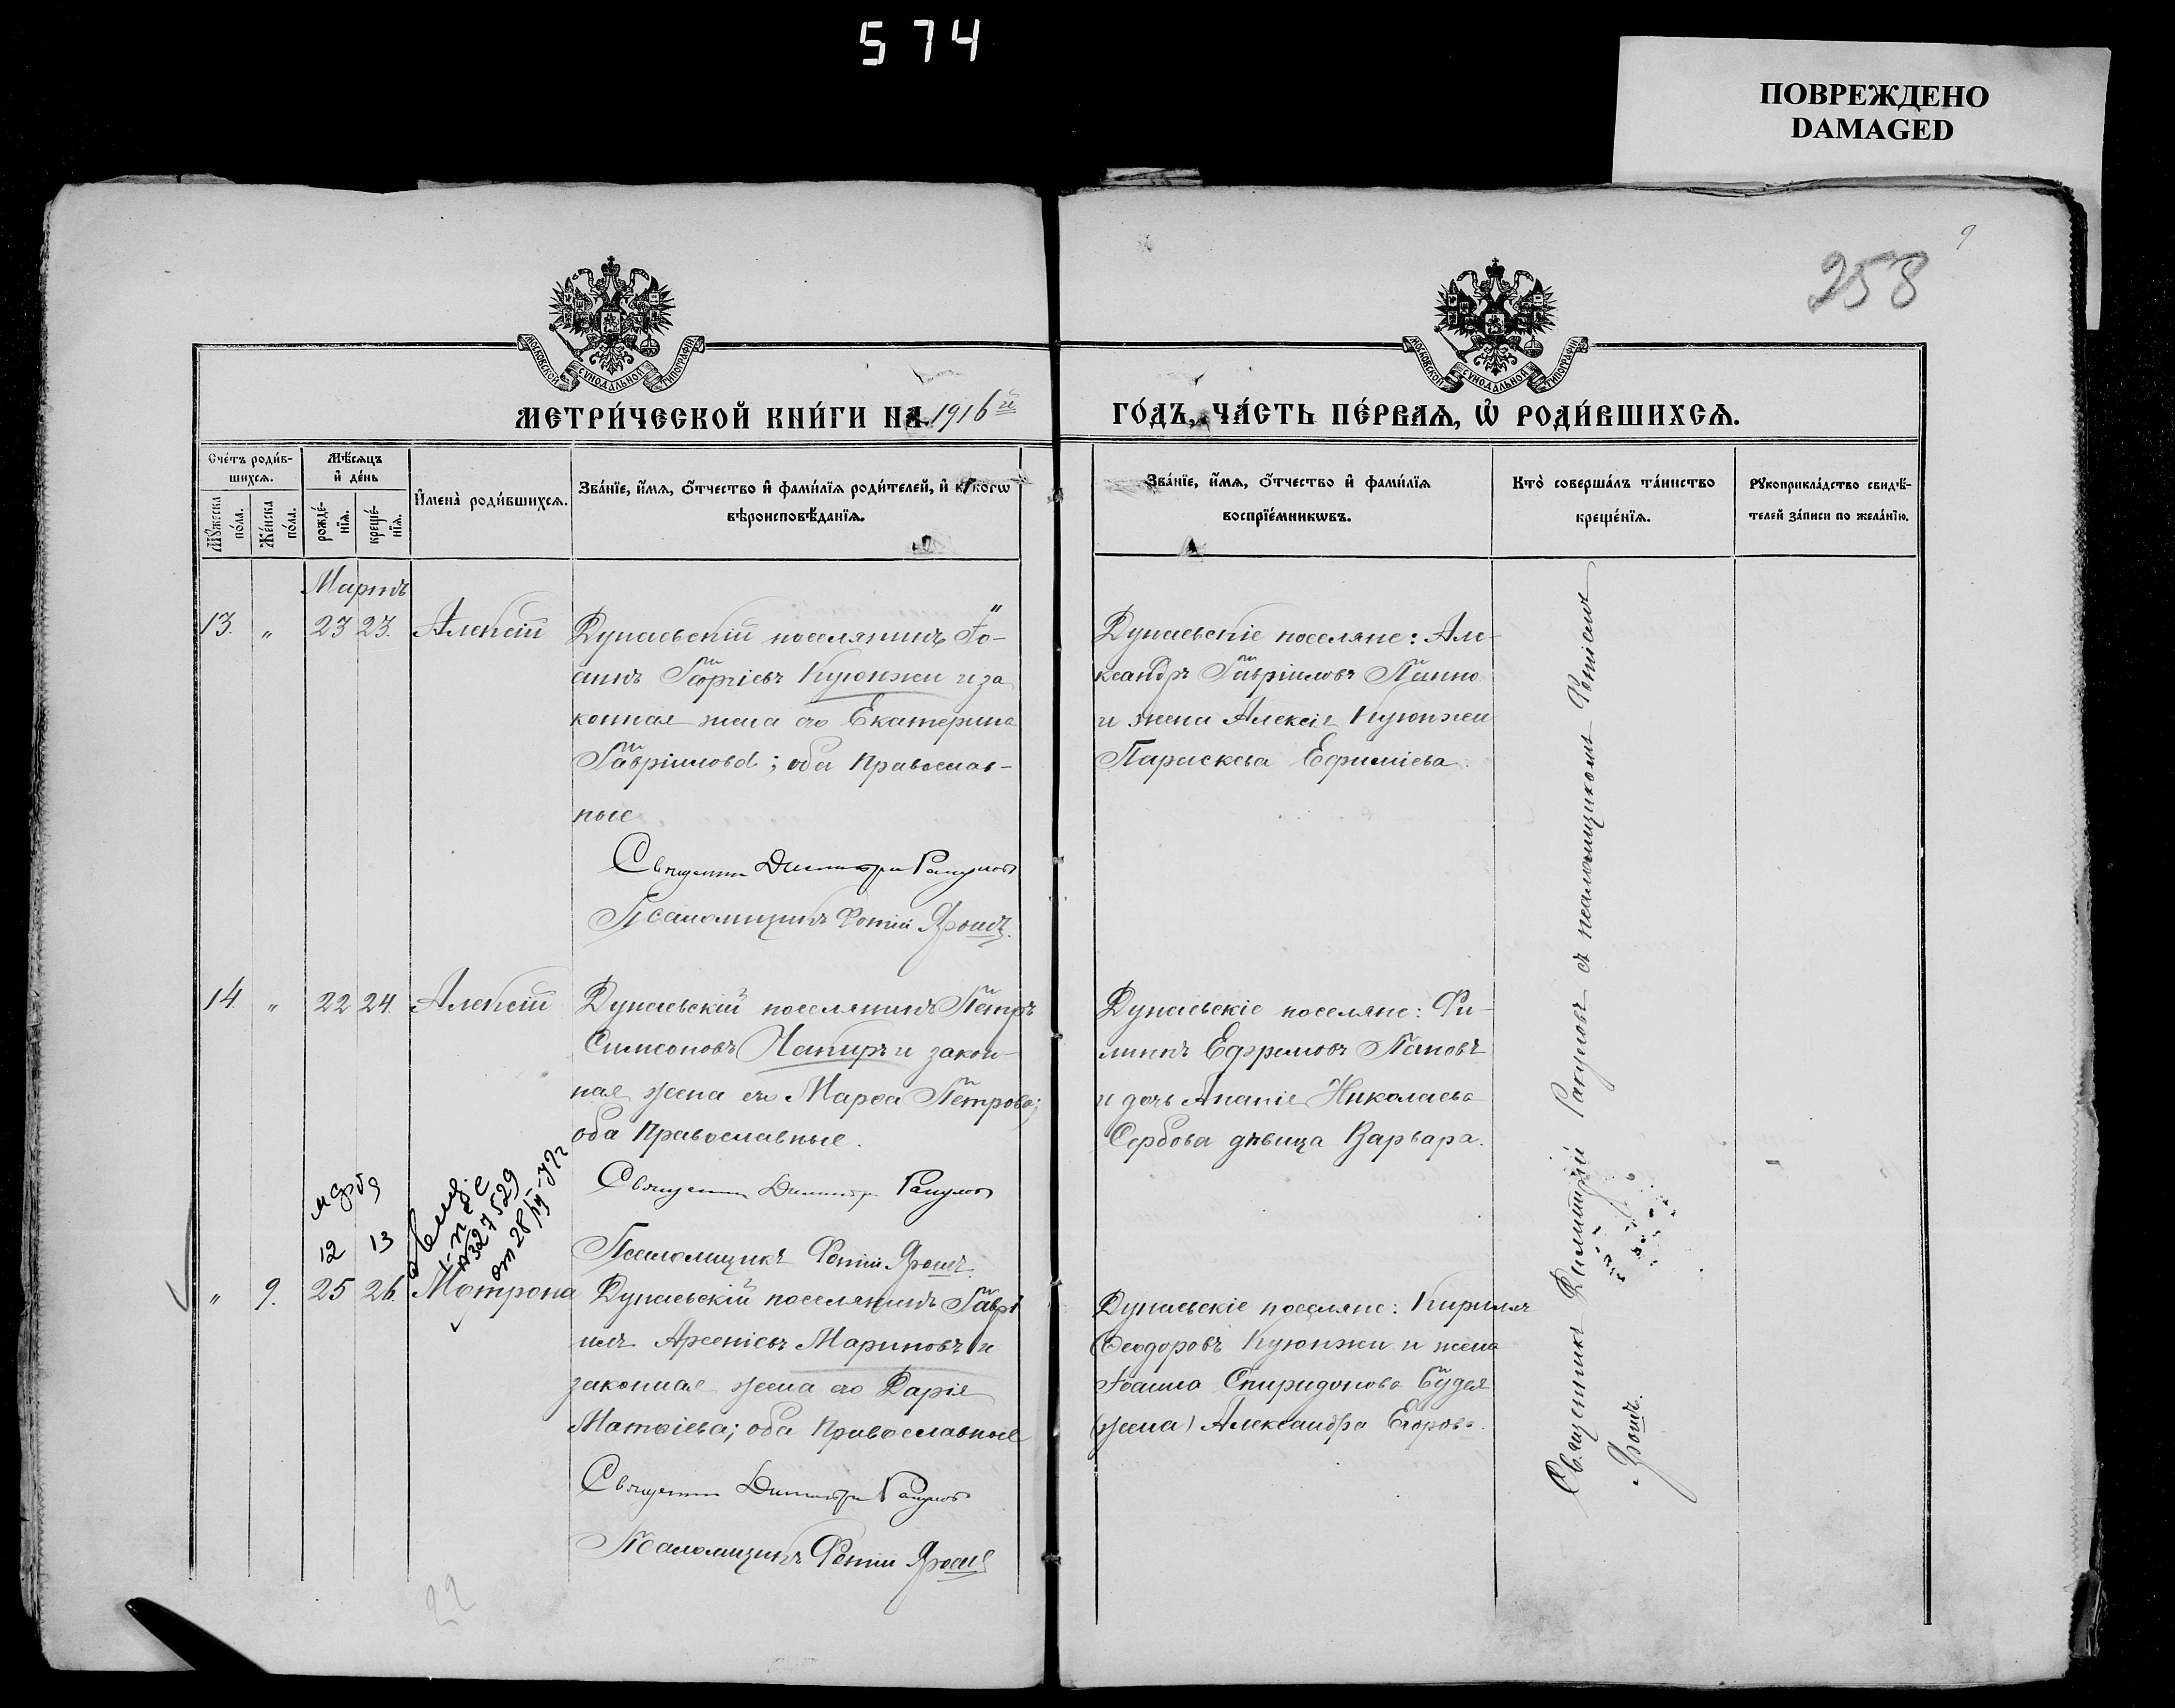 574
ПОВРЕЖДЕНО
DAMAGED
9
258
МОСКОВСКОЙ СѴНОДАЛЬНОЙ ТИПОГРАФІИ
МОСКОВСКОЙ СѴНОДАЛЬНОЙ ТИПОГРАФІИ
МЕТРИ́ЧЕСКОЙ КНИ́ГИ НА 1916й
ГО́ДЪ, ЧА́СТЬ ПЕ́РВАѦ, Ѡ҆ РОДИ́ВШИХСѦ.
Сче́тъ роди́в-
шихсѧ.
Мꙋ́жеска
по́ла.
Же́нска
по́ла.
Мѣ́сѧцъ
и҆ де́нь
рожде́-
нїѧ.
креще́-
нїѧ.
И҆мена̀ роди́вшихсѧ.
Зва́нїе, и҆́мѧ, ѻ҆́тчество и҆ фами́лїѧ роди́телей, и҆ како́гѡ
вѣроисповѣ́данїѧ.
Зва́нїе, и҆́мѧ, ѻ҆́тчество и҆ фами́лїѧ
воспрїе́мникѡвъ.
Кто̀ соверша́лъ та́инство
креще́нїѧ.
Рꙋкоприкла́дство свидѣ́-
телей за́писи по жела́нїю.
Мартъ
13. „ 23 23. Алексій
Дунаевскій поселянинъ Іо-
аннъ Георгіевъ Куюнжи и за
конная жена его Екатерина
Гавріилова; оба Православ-
ные
Священникъ Димитрій Ракуловъ
Псаломщикъ Фотій Ярошъ.
Дунаевскіе поселяне: Але-
ксандръ Гавріиловъ
и жена Алексія Куюнжи
Параскева Ефиміева.
14. „ 22 24. Алексій
Дунаевскій поселянинъ Петръ
Симеоновъ Чакиръ и закон-
ная жена его Марѳа Петрова;
оба Православные.
Священникъ Димитрій Ракуловъ
Псаломщикъ Фотій Ярошъ.
Дунаевскіе поселяне: Фи-
липпъ Ефремовъ Пановъ
и дочь Ананіе Николаева
Сербова дѣвица Варвара.
марта
12 13
N 327529
от 28/IV-72г
„ 9. 25 26. Матрона
Дунаевскій поселянинъ Гаврі
илъ Арсеніевъ Мариновъ и
законная жена его Дарія
Матѳіева; оба Православные
Священникъ Димитрій Ракуловъ
Псаломщикъ Фотій Ярошъ
Дунаевскіе поселяне: Кириллъ
Ѳеодоровъ Куюнжи и жена
Іоанна Спиридонова
(жена) Александра Егорова.
Священникъ Димитрій Ракуловъ съ псаломщикомъ Фотіемъ
Ярошъ.
22